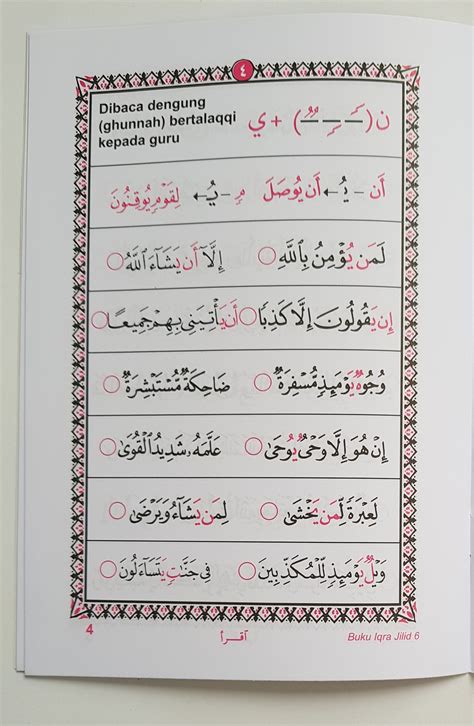 ٤
Dibaca dengung
(ghunnah) bertalaqqi
kepada guru
ن(ـــَـــِـــٌ) + ي
أَن - يُ ← أَن يُوصَلَ مٍ - يُ ← لِقَوْمٍ يُوقِنُونَ
لَمَن يُؤْمِنُ بِاللَّهِ ○ إِلَّا أَن يَشَاءَ اللَّهُ ○
إِن يَقُولُونَ إِلَّا كَذِبًا ○ أَن يَأْتِيَنِي بِهِمْ جَمِيعًا ○
وُجُوهٌ يَوْمَئِذٍ مُّسْفِرَةٌ ○ ضَاحِكَةٌ مُّسْتَبْشِرَةٌ ○
إِنْ هُوَ إِلَّا وَحْيٌ يُوحَىٰ ○ عَلَّمَهُ شَدِيدُ الْقُوَىٰ ○
لَعِبْرَةً لِّمَن يَخْشَىٰ ○ لِمَن يَشَاءُ وَيَرْضَىٰ ○
وَيْلٌ يَوْمَئِذٍ لِّلْمُكَذِّبِينَ ○ فِي جَنَّاتٍ يَتَسَاءَلُونَ ○
4
اقرأ
Buku Iqra Jilid 6